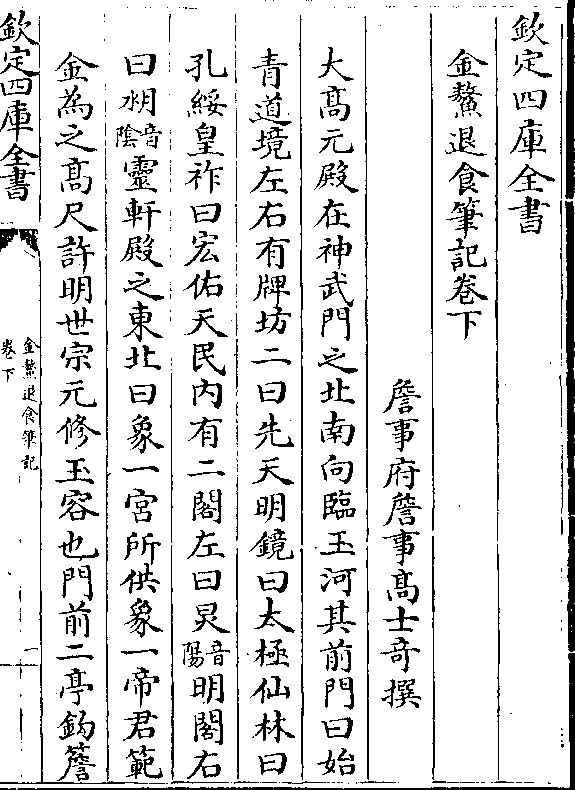 欽定四庫全書
金鰲退食筆記卷下
詹事府詹事髙士竒撰
大髙元殿在神武門之北南向臨玉河其前門曰始
青道境左右有牌坊二曰先天明鏡曰太極仙林曰
孔綏皇祚曰宏佑天民内有二閣左曰炅音陽明閣右
曰𣱵音陰靈軒殿之東北曰象一宮所供象一帝君範
金為之髙尺許明世宗元修玉容也門前二亭鈎簷
欽定四庫全書
金鰲退食筆記
卷下
一